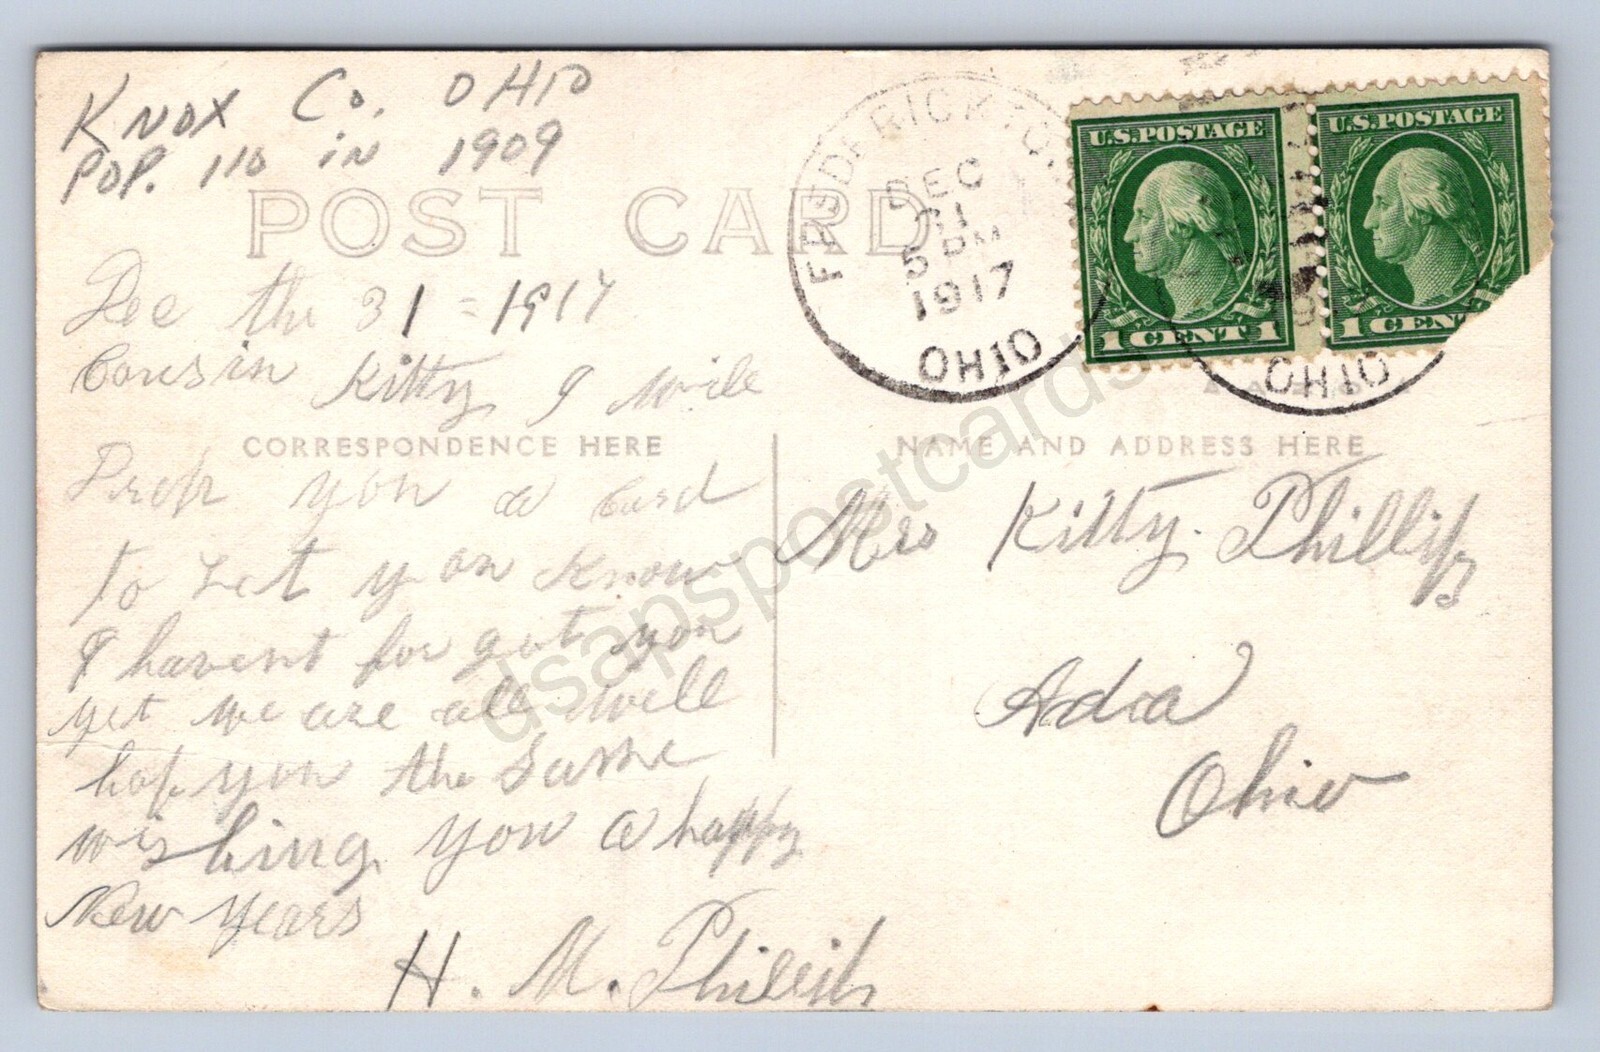 KNOX CO. OHIO
POP. 110 IN 1909
POST CARD
FREDERICKTOWN
DEC
31
5 PM
1917
OHIO
U.S. POSTAGE
1 CENT 1
U.S. POSTAGE
1 CENT
OHIO
Dec the 31 = 1917
Cousin Kitty I will
CORRESPONDENCE HERE
Drop you a Card
to Let you know
I havent for got you
yet we are all well
hop you the Same
wishing you a happy
New Years
H. M. Phillips
NAME AND ADDRESS HERE
Mrs Kitty Phillips
Ada
Ohio
dsapspostcards